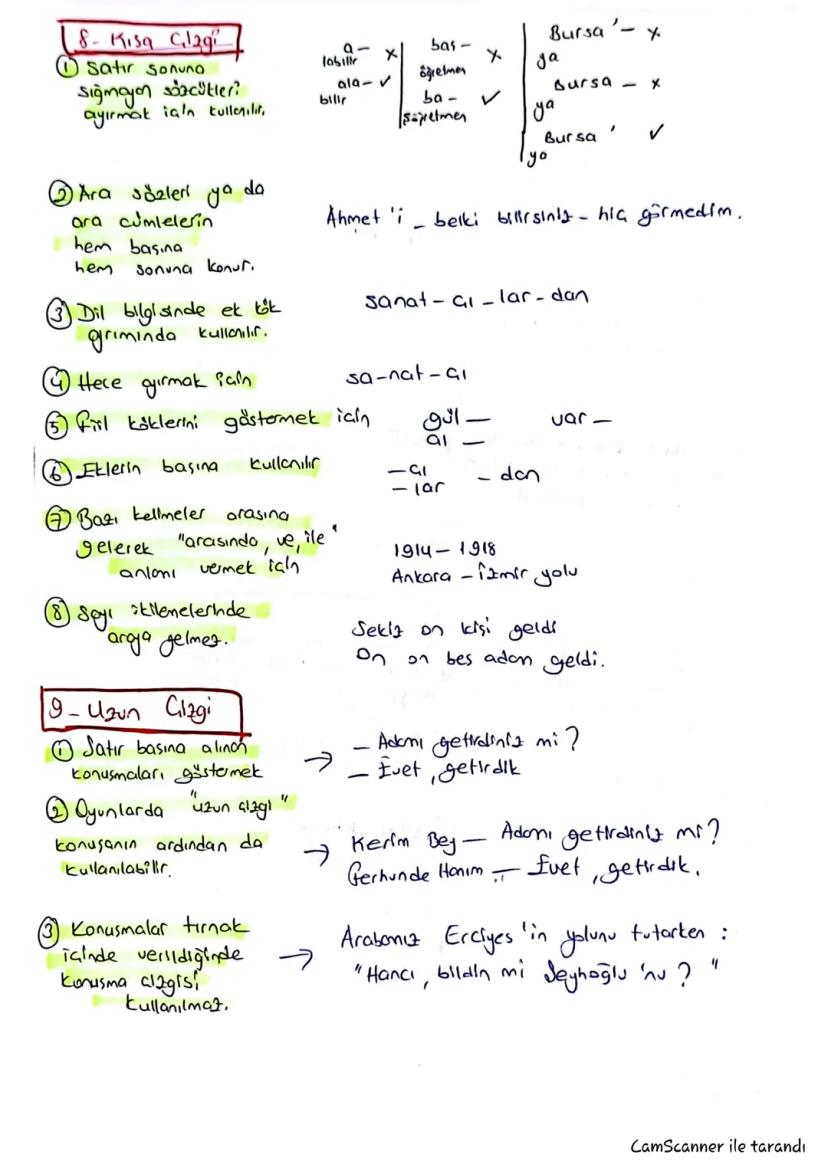 8- Kısa Çizgi
① Satır sonuna
sığmayan sözcükleri
ayırmak için kullanılır.
a- x
labilir
ala- ✓
bilir
baş- x
öğretmen
ba- ✓
şöğretmen
Bursa'- x
ya
Bursa - x
ya
Bursa' ✓
ya
② Ara sözleri ya da
ara cümlelerin
hem başına
hem sonuna konur.
Ahmet'i - belki bilirsiniz - hiç görmedim.
③ Dil bilgisinde ek kök
ayrımında kullanılır.
sanat - çı - lar - dan
④ Hece ayırmak için
sa-nat-çı
⑤ Fiil köklerini göstermek için
gül — var —
al —
⑥ Eklerin başına kullanılır
-çı - dan
-lar
⑦ Bazı kelimeler arasına
gelerek "arasında, ve, ile"
anlamı vermek için
1914 - 1918
Ankara - İzmir yolu
⑧ Sayı ikilemelerinde
araya gelmez.
Sekiz on kişi geldi
On on beş adam geldi.
9- Uzun Çizgi
① Satır başına alınan
konuşmaları göstermek
→ — Adamı getirdiniz mi?
— Evet, getirdik
② Oyunlarda "uzun çizgi"
konuşanın ardından da
kullanılabilir.
→ Kerim Bey — Adamı getirdiniz mi?
Ferhunde Hanım — Evet, getirdik.
③ Konuşmalar tırnak
içinde verildiğinde
konuşma çizgisi
kullanılmaz.
→ Arabamız Erciyes'in yolunu tutarken :
"Hancı, bildin mi Şeyhoğlu'nu?"
CamScanner ile tarandı